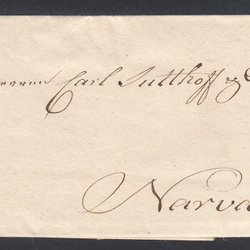 Carl Sutthoff &
Narva